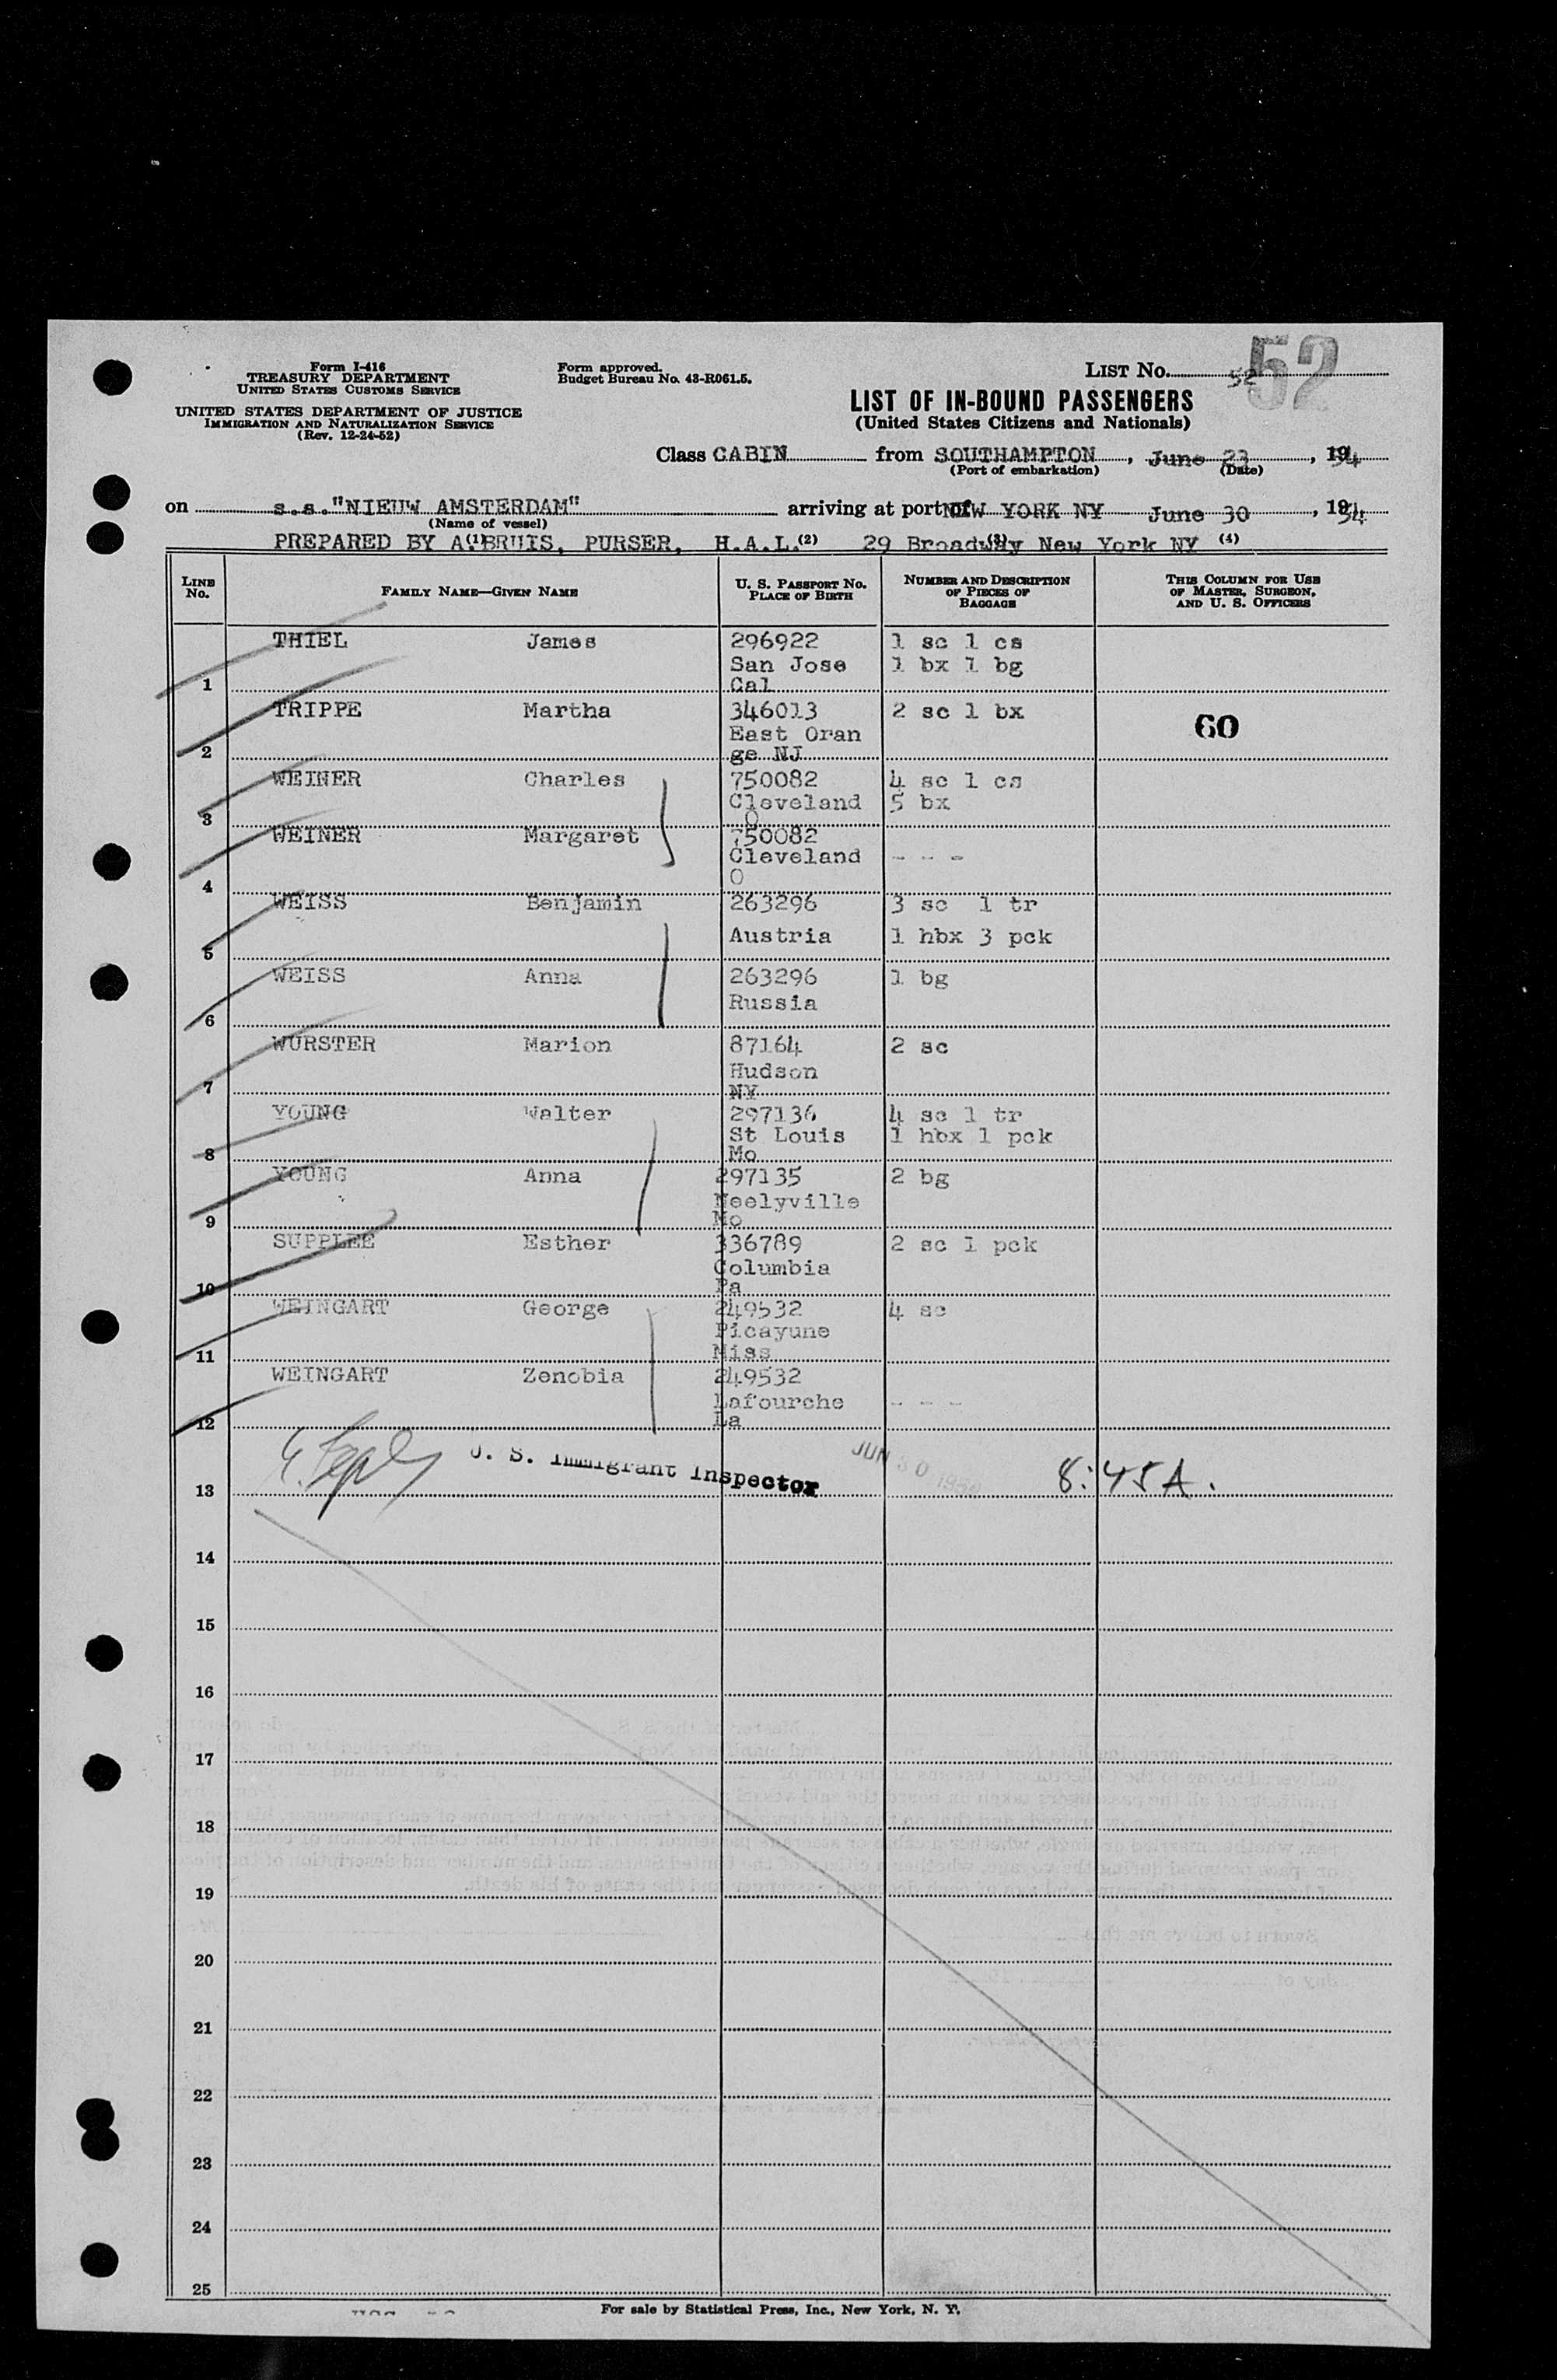 Form I-416
TREASURY DEPARTMENT
UNITED STATES CUSTOMS SERVICE
UNITED STATES DEPARTMENT OF JUSTICE
IMMIGRATION AND NATURALIZATION SERVICE
(Rev. 12-24-52)
Form approved.
Budget Bureau No. 43-R061.5.
LIST NO. 52
52
LIST OF IN-BOUND PASSENGERS
(United States Citizens and Nationals)
Class CABIN from SOUTHAMPTON, June 23, 1954
(Port of embarkation) (Date)
on s.s."NIEUW AMSTERDAM" arriving at port of NEW YORK NY June 30, 1954
(Name of vessel)
PREPARED BY A. BRUIS, PURSER, H.A.L. 29 Broadway New York NY
(1) (2) (3) (4)
LINE NO. FAMILY NAME—GIVEN NAME U. S. PASSPORT NO. PLACE OF BIRTH NUMBER AND DESCRIPTION OF PIECES OF BAGGAGE THIS COLUMN FOR USE OF MASTER, SURGEON, AND U. S. OFFICERS
THIEL James 296922 1 sc 1 cs
San Jose 1 bx 1 bg
1 Cal
TRIPPE Martha 346013 2 sc 1 bx
East Oran 60
2 ge NJ
WEINER Charles 750082 4 sc 1 cs
Cleveland 5 bx
3 O
WEINER Margaret 750082
Cleveland - - -
4 O
WEISS Benjamin 263296 3 sc 1 tr
5 Austria 1 hbx 3 pck
WEISS Anna 263296 1 bg
Russia
6
WURSTER Marion 87164 2 sc
Hudson
7 NY
YOUNG Walter 297136 4 sc 1 tr
St Louis 1 hbx 1 pck
8 Mo
YOUNG Anna 297135 2 bg
Neelyville
9 Mo
SUPPLEE Esther 336789 2 sc 1 pck
Columbia
10 Pa
WEINGART George 249532 4 sc
Picayune
11 Miss
WEINGART Zenobia 249532
Lafourche - - -
12 La
U. S. Immigrant Inspector JUN 30 1954 8:45A.
13
14
15
16
17
18
19
20
21
22
23
24
25
For sale by Statistical Press, Inc., New York, N. Y.